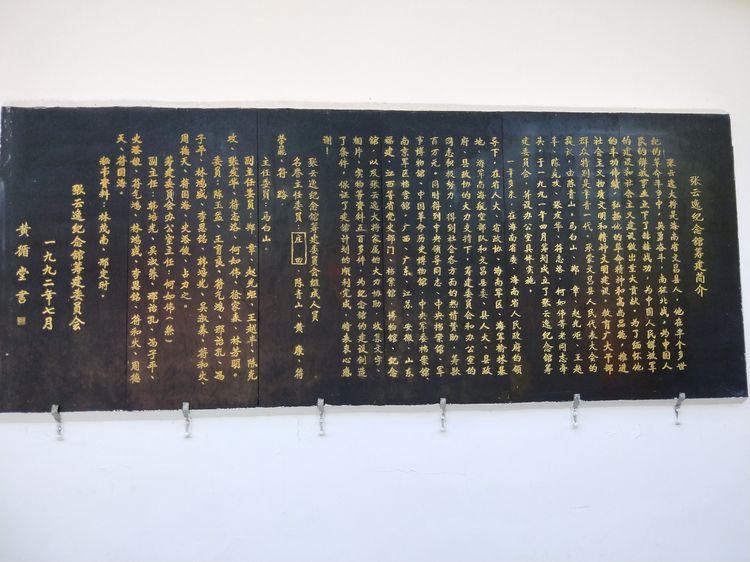 张云逸纪念馆筹建简介
张云逸大将是海南省文昌县人，他在半个多世
纪的革命斗争中，兵戈铁马，南征北战，为中国人
民的解放事业立下了
的建设和社会主义建设做出重大贡献。为了缅怀他
的丰功伟绩，弘扬他的革命精神和高尚品德，推进
社会主义物质文明和精神文明建设，教育广大干部
群众特别是青年一代，承蒙文昌县人民代表大会的
我议，由陈青山，马白山，郑章，赵光炬，王越
丰，陈克攻，张发华，符志洛，何如伟等老同志牵
头，于一九九一年四月筹划成立了张云逸纪念馆筹
建委员会，筹设办公室具体实施。
一年多来，在海南省委、海南省人民政府的领
导下，在省人大、省政协、海南军区、海军榆林基
地、海军南海舰空部队和文昌县委、县人大、县政
府、县政协的大力支持下，筹建委员会和办公室的
同志积极努力，得到社会各方面的热情赞助，筹款
百万元，同时得到中央领导同志、中央档案馆、军
事博物馆、中国革命历史博物馆、中央军委档案馆、
南京军区档案馆，广西、广东、江苏、安徽、山东
福建、江西等省党史部门、档案馆、博物馆、纪念
馆，以及张云逸大将家属的大力协助，收集文字、
相片、实物等资料五百多件，为纪念馆的建设创造
了条件，保证了建馆计划的顺利完成，特表衷心感
谢！
张云逸纪念馆筹建委员会组成人员
名誉主任委员：庄田、陈青山、黄康、符
荣鼎、符路
主任委员：马白山
副主任委员：郑章、赵光炬、王越丰、陈克
攻、张发华、符志洛、何如伟、徐家森、林芳明。
委员：陈玉益、王育良、符气鸿、邢诒孔、冯
子平、林鸿武、李恩铭、韩培光、吴淑养、符和火、
周德天、符国海、史洛俊、占力之。
筹建委员会办公室主任：何如伟（兼）
副主任：韩培光、吴淑养、邢诒孔、冯子平、
史洛俊、符气鸿、林鸿武、李恩铭、符和火、周德
天、符国海。
秘书资料：林茂南、邢定时。
张云逸纪念馆筹建委员会
一九九二年七月
黄循堂书